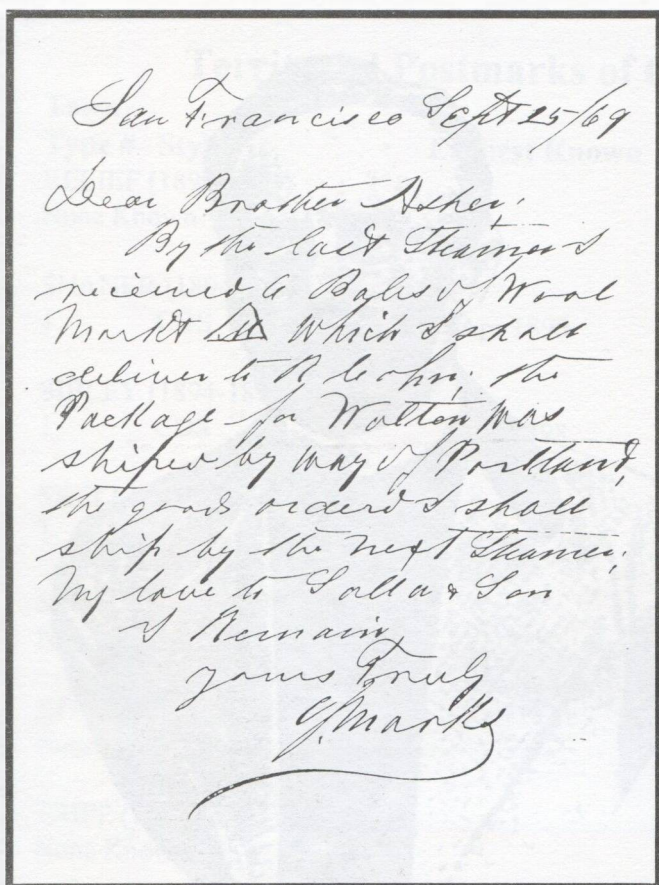 San Francisco Sept 25/69
Dear Brother Asher;
By the last Steamer I
received 6 Bales of Wool
Markt which I shall
deliver to R Cohn; the
Package for Walton was
shiped by way of Portland,
the goods orderd I shall
ship by the next Steamer;
My love to & Son
I Remain
yours Truly
Marks